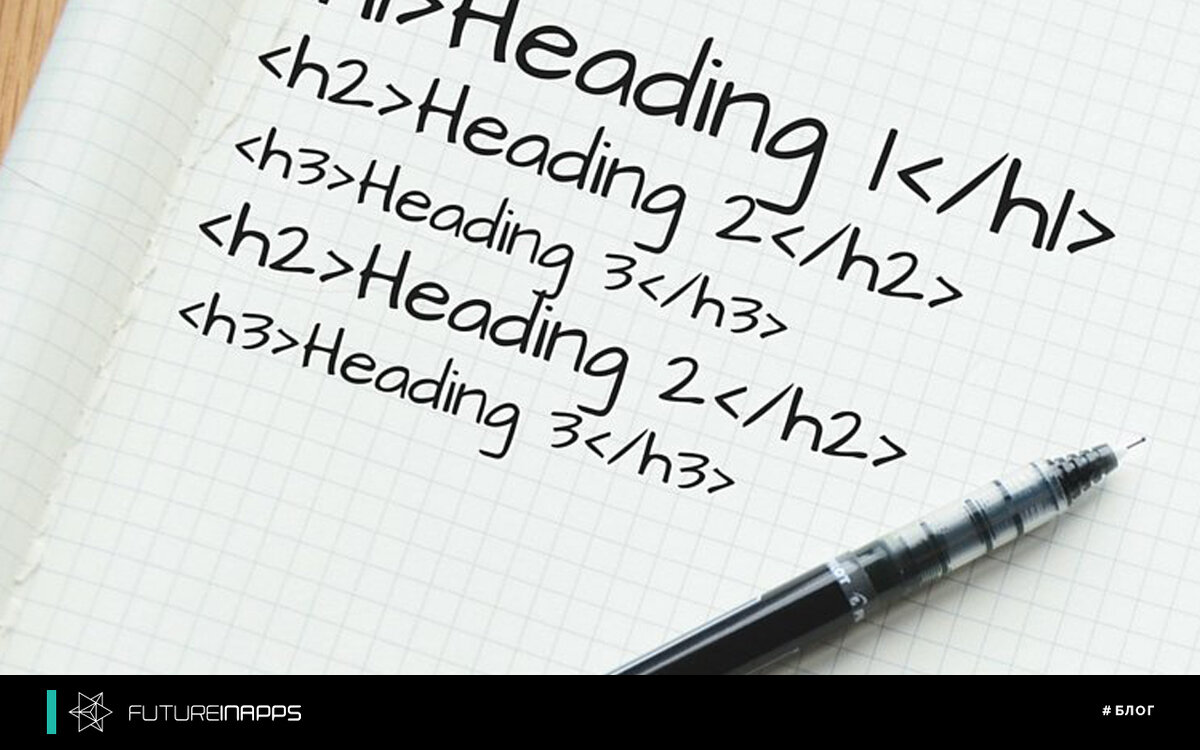 <h1>Heading 1</h1>
<h2>Heading 2</h2>
<h3>Heading 3</h3>
<h2>Heading 2</h2>
<h3>Heading 3</h3>
FUTUREINAPPS
#БЛОГ